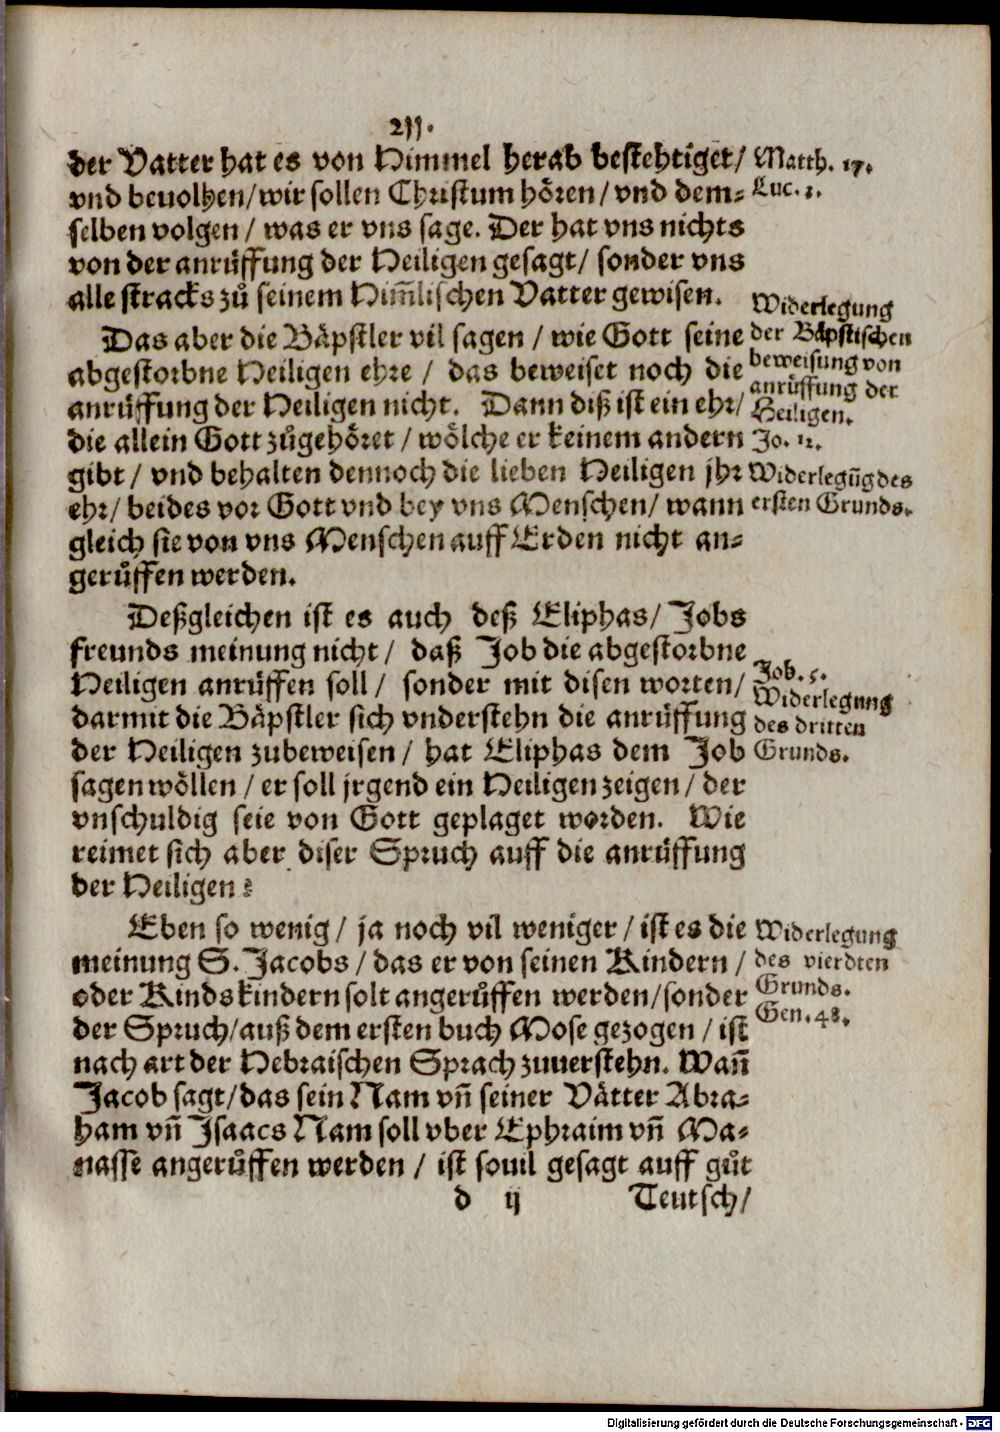 211.
der Vatter hat es von Himmel herab bestehtiget/
vnd beuolhen/wir sollen Christum hören/vnd dem-
selben volgen/ was er vns sage. Der hat vns nichts
von der anrüffung der Heiligen gesagt/ sonder vns
alle stracks zů seinem Him̃lischen Vatter gewisen.
Matth. 17.
Luc. 1.
Das aber die Bäpstler vil sagen / wie Gott seine
abgestorbne Heiligen ehre / das beweiset noch die
anrüffung der Heiligen nicht. Dann diß ist ein ehr/
die allein Gott zůgehöret / wölche er keinem andern
gibt / vnd behalten dennoch die lieben Heiligen jhr
ehr/ beides vor Gott vnd bey vns Menschen/ wann
gleich sie von vns Menschen auff Erden nicht an-
gerůffen werden.
Widerlegung
der Bäpstischen
beweisung von
anrüffung der
Heiligen.
Jo. 12.
Widerlegũg des
ersten Grunds.
Deßgleichen ist es auch deß Eliphas/ Jobs
freunds meinung nicht/ daß Job die abgestorbne
Heiligen anrüffen soll/ sonder mit disen worten/
darmit die Bäpstler sich vnderstehn die anrüffung
der Heiligen zubeweisen/ hat Eliphas dem Job
sagen wöllen / er soll jrgend ein Heiligen zeigen/ der
vnschuldig seie von Gott geplaget worden. Wie
reimet sich aber diser Spruch auff die anrüffung
der Heiligen?
Job. 5.
Widerlegung
des dritten
Grunds.
Eben so wenig/ ja noch vil weniger / ist es die
meinung S. Jacobs / das er von seinen Kindern /
oder Kindskindern solt angerůffen werden/sonder
der Spruch/auß dem ersten buch Mose gezogen / ist
nach art der Hebraischen Sprach zuuerstehn. Wañ
Jacob sagt/das sein Nam vñ seiner Vätter Abra-
ham vñ Isaacs Nam soll vber Ephraim vñ Ma-
nasse angerůffen werden / ist souil gesagt auff gůt
Widerlegung
des vierdten
Grunds.
Gen. 48.
d ij Teutsch/
Digitalisierung gefördert durch die Deutsche Forschungsgemeinschaft - DFG